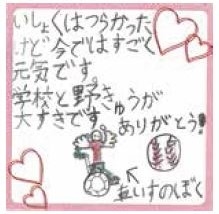 いしょくはつらかった
けど今ではすごく
元気です。
学校と野きゅうが
大すきです
ありがとう!!